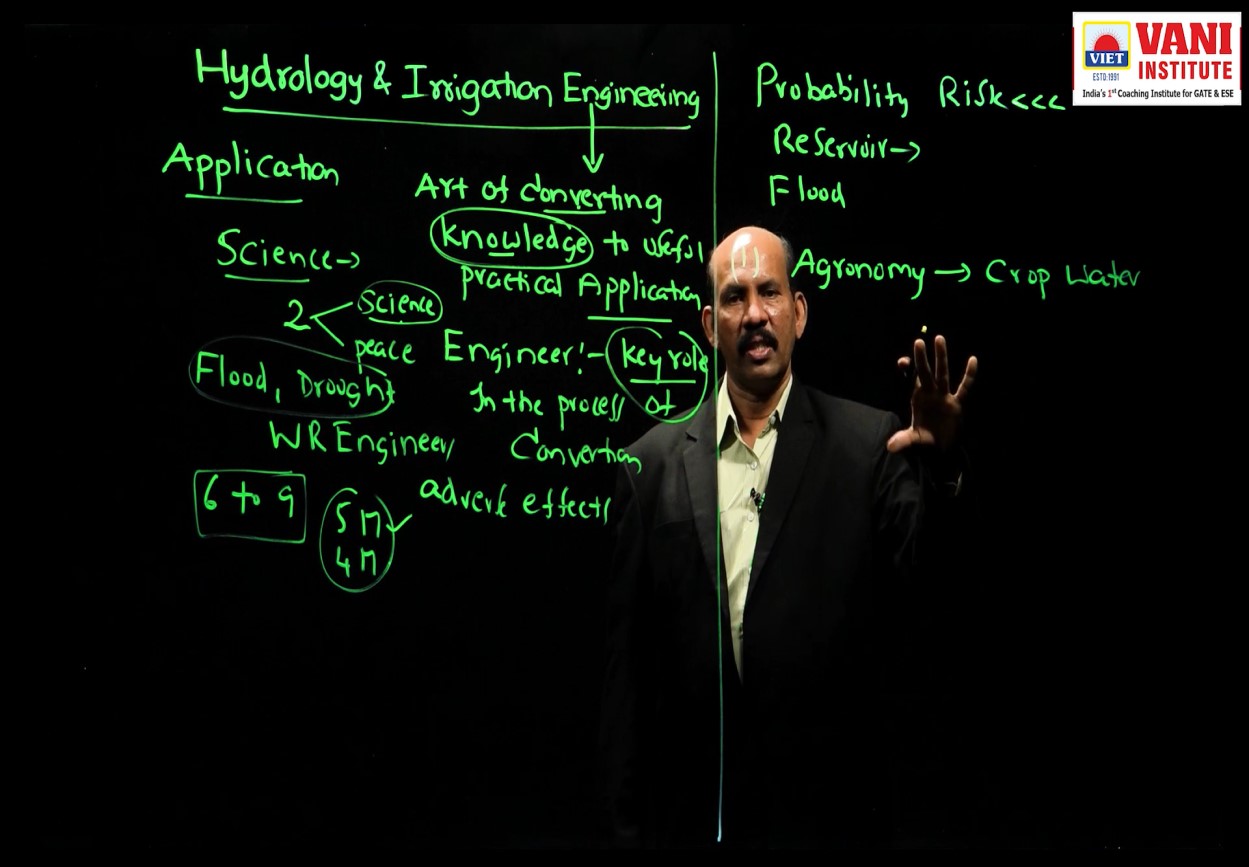 Hydrology & Irrigation Engineering
Application
Art of Converting
Knowledge to useful
practical Application
Science→
2 < Science
peace
Engineer:- key role
In the process of
Convertion
Flood, Drought
WR Engineer
6 to 9
5 M
4 M
adverse effects
Probability Risk<<<
Reservoir→
Flood
(1) Agronomy → Crop Water
VIET
ESTD:1991
VANI
INSTITUTE
India's 1st Coaching Institute for GATE & ESE